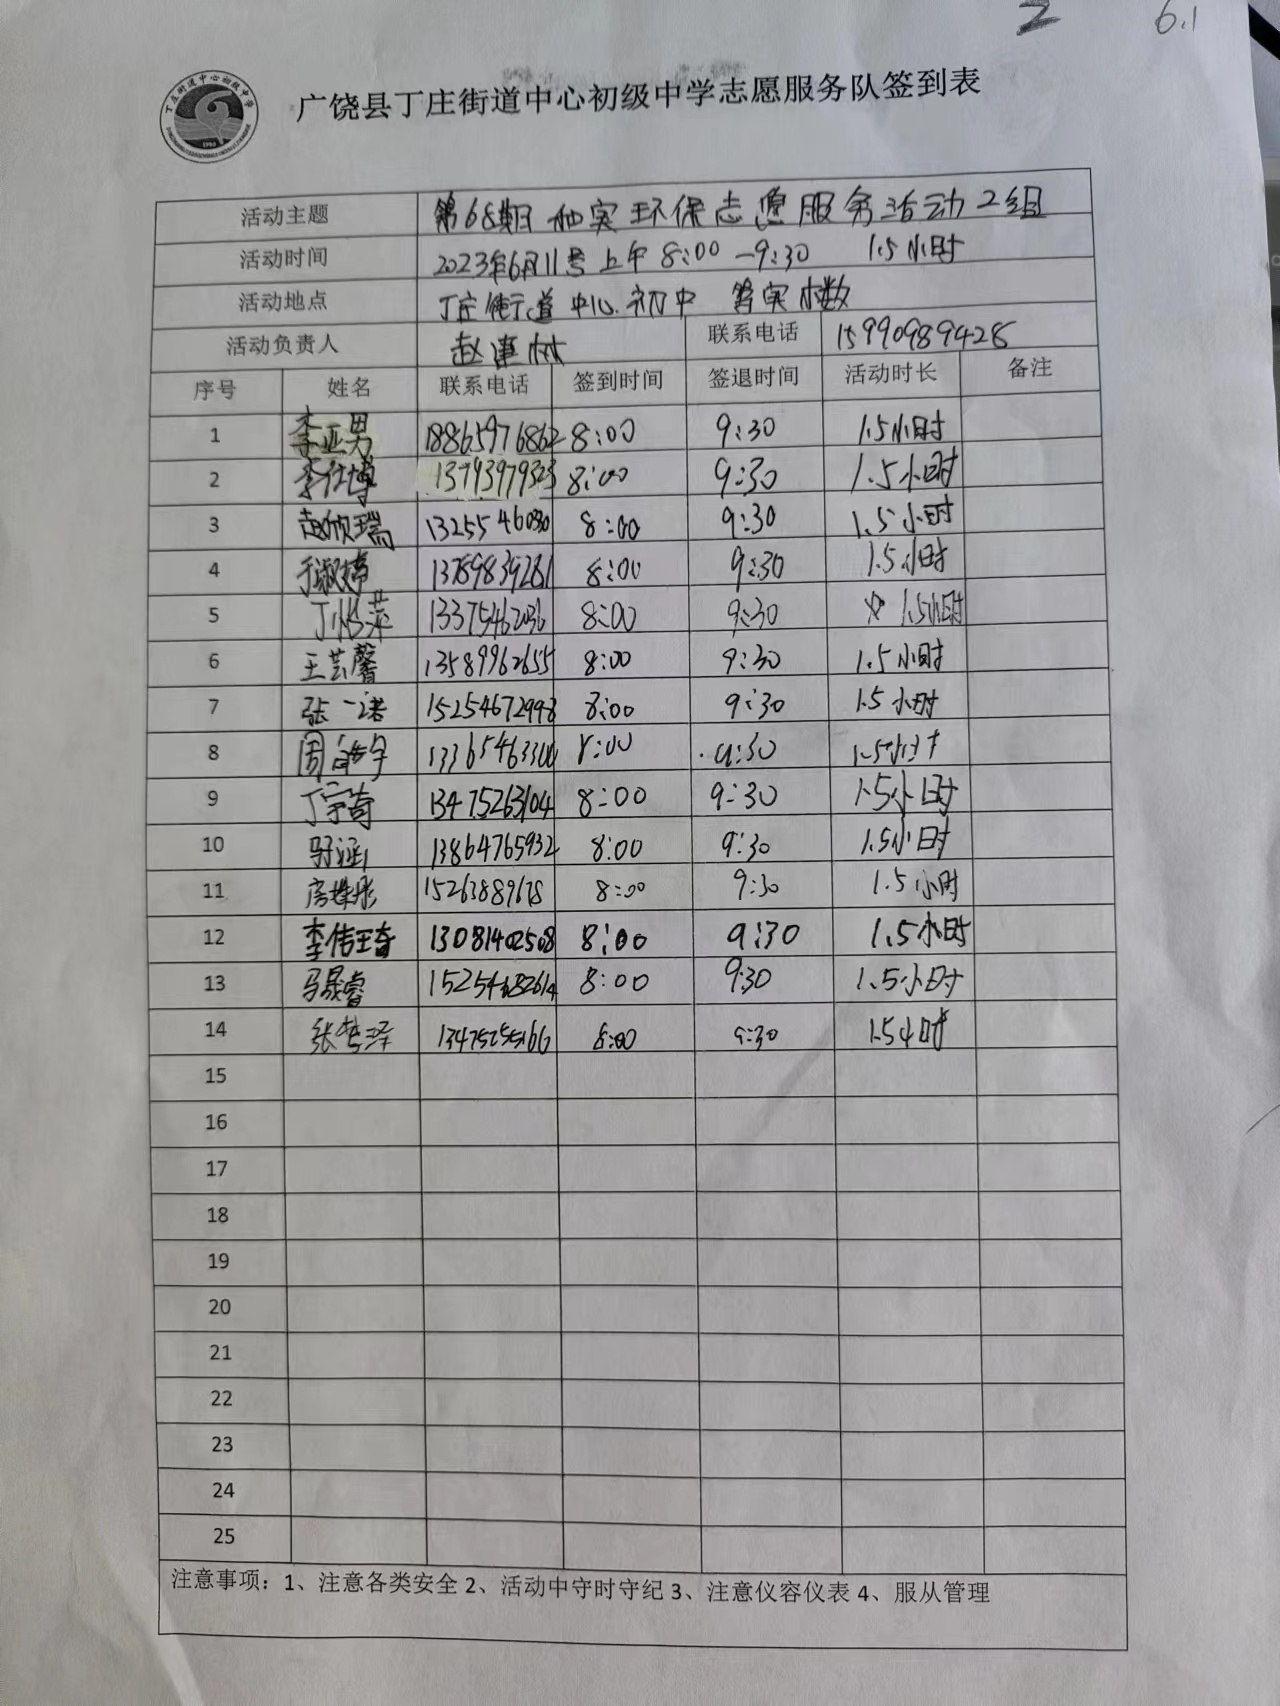 2 6.1
广饶县丁庄街道中心初级中学志愿服务队签到表
活动主题 第68期 和实环保志愿服务活动2组
活动时间 2023年6月11号上午8:00—9:30 1.5小时
活动地点 丁庄街道中心初中
活动负责人 赵建树 联系电话 15990989428
序号 姓名 联系电话 签到时间 签退时间 活动时长 备注
1 李亚男 18865976862 8:00 9:30 1.5小时
2 李仕博 13793979323 8:00 9:30 1.5小时
3 赵欣瑞 8:00 9:30 1.5小时
4 于淑婷 13789839281 8:00 9:30 1.5小时
5 丁怡萍 13375462036 8:00 9:30 1.5小时
6 王芸馨 13589962655 8:00 9:30 1.5小时
7 张一诺 15254672998 8:00 9:30 1.5小时
8 13365463300 8:00 9:30 1.5小时
9 丁宇奇 13475263104 8:00 9:30 1.5小时
10 13864765932 8:00 9:30 1.5小时
11 15263889678 8:00 9:30 1.5小时
12 13081402508 8:00 9:30 1.5小时
13 马晟睿 15254682614 8:00 9:30 1.5小时
14 13475255166 8:00 9:30 1.5小时
15
16
17
18
19
20
21
22
23
24
25
注意事项：1、注意各类安全 2、活动中守时守纪 3、注意仪容仪表 4、服从管理